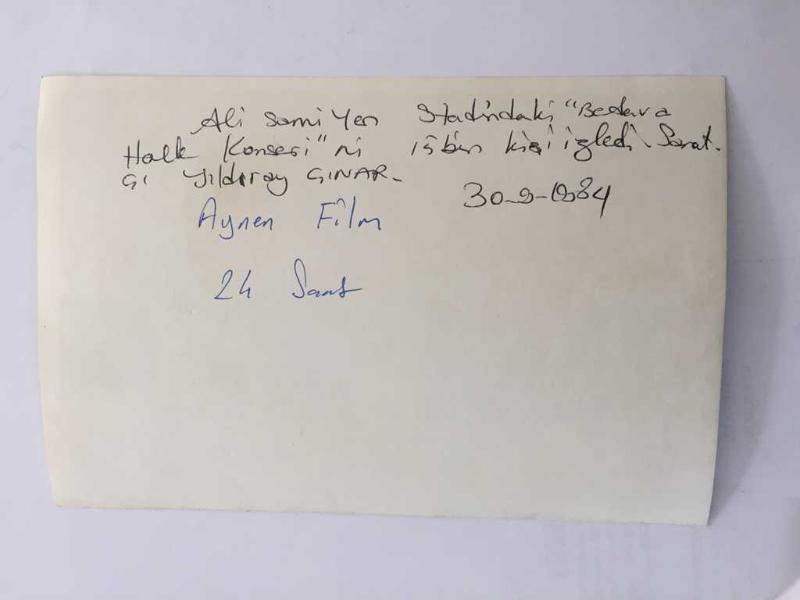 Ali Sami Yen Stadındaki "Bedava
Halk Konseri"ni kişi izledi. Sanat.
çı Yıldıray ÇINAR.
30-9-1984
Aynen Film
24 Saat